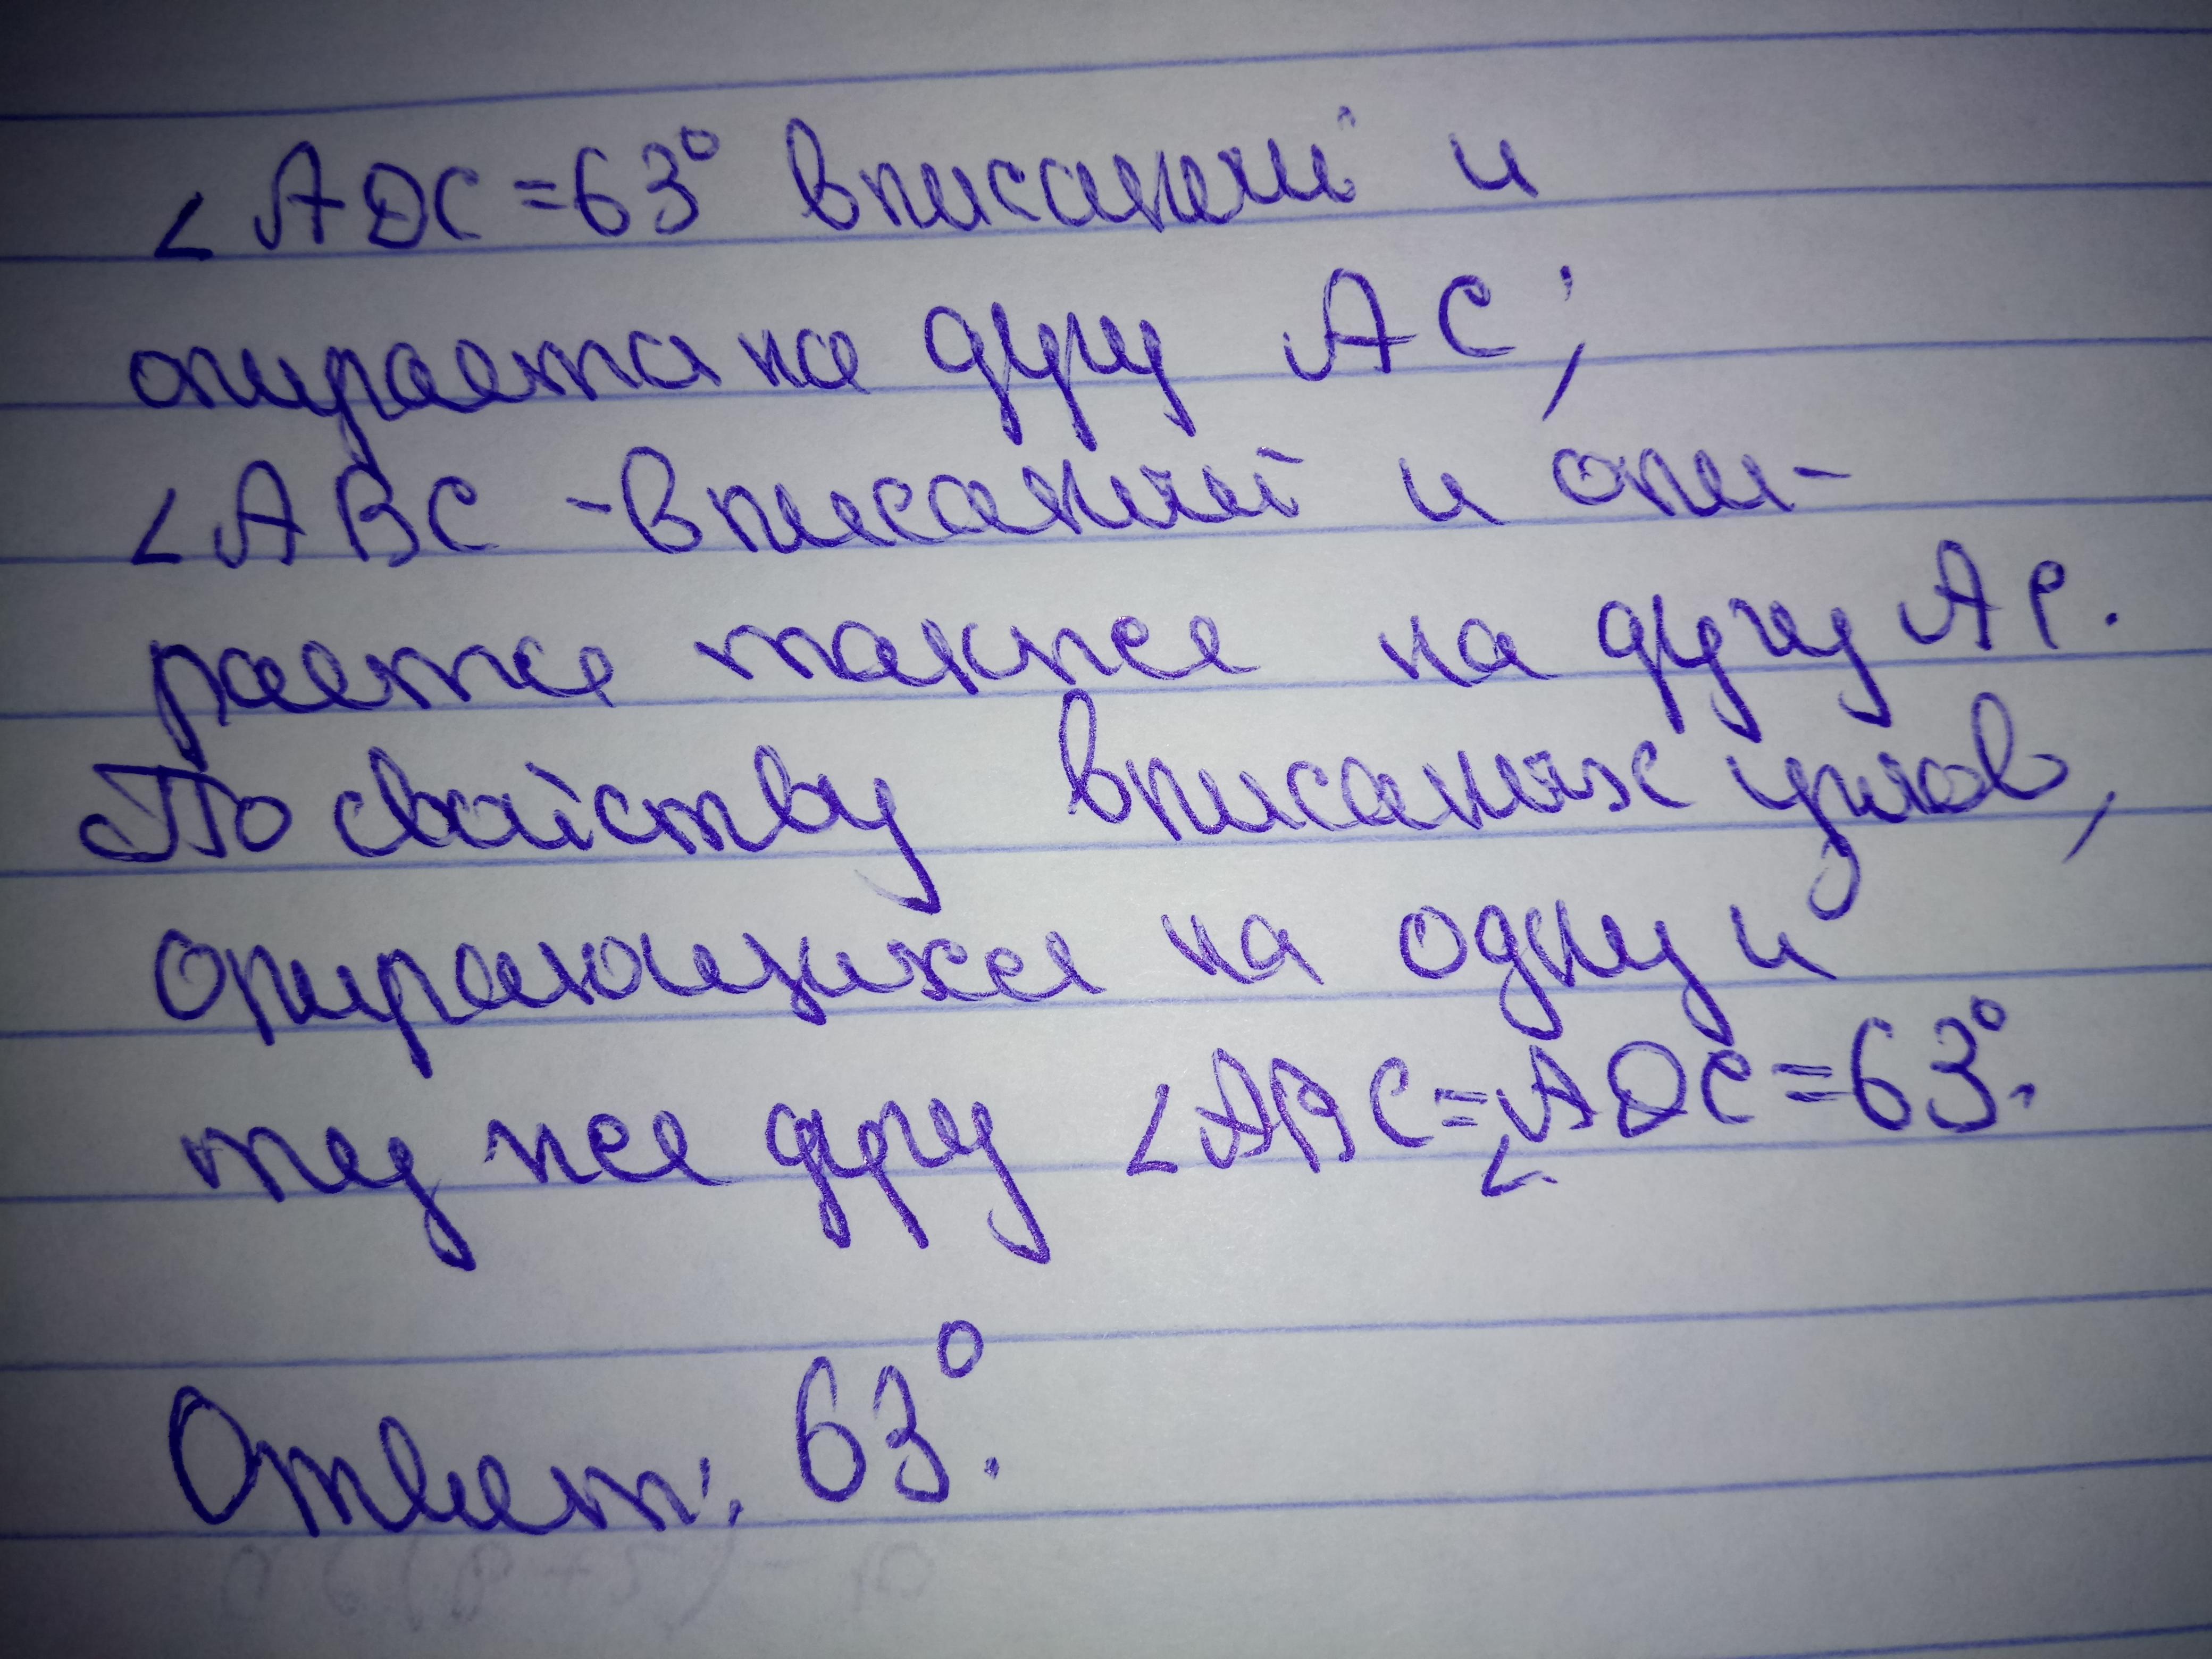 ∠ADC=63° вписаный и
опирается на дугу AC;
∠ABC - вписаный и опи-
рается также на дугу AC.
По свойству вписаных углов,
опирающихся на одну и
ту же дугу ∠ABC=∠ADC=63°.
Ответ: 63°.